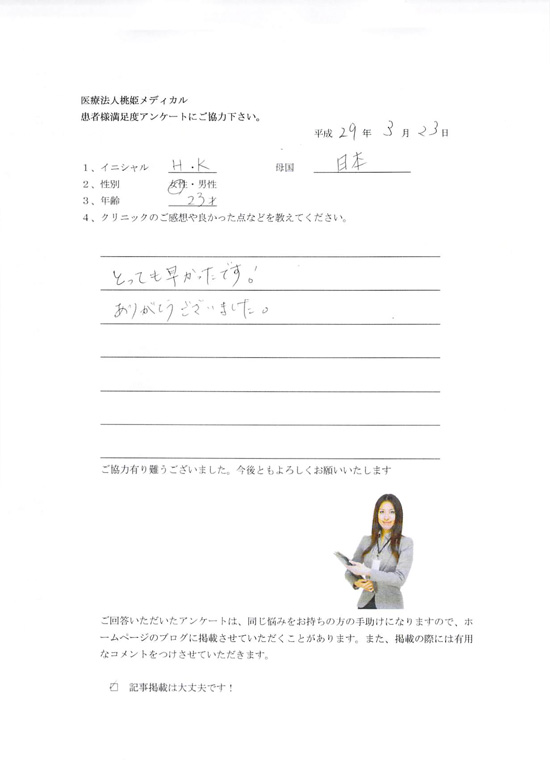 医療法人桃姫メディカル
患者様満足度アンケートにご協力下さい。
平成 29 年 3 月 23 日
1、イニシャル H・K 母国 日本
2、性別 女性・男性
3、年齢 23才
4、クリニックのご感想や良かった点などを教えてください。
とっても早かったです!
ありがとうございました。
ご協力有り難うございました。今後ともよろしくお願いいたします
ご回答いただいたアンケートは、同じ悩みをお持ちの方の手助けになりますので、ホ
ームページのブログに掲載させていただくことがあります。また、掲載の際には有用
なコメントをつけさせていただきます。
☑ 記事掲載は大丈夫です!